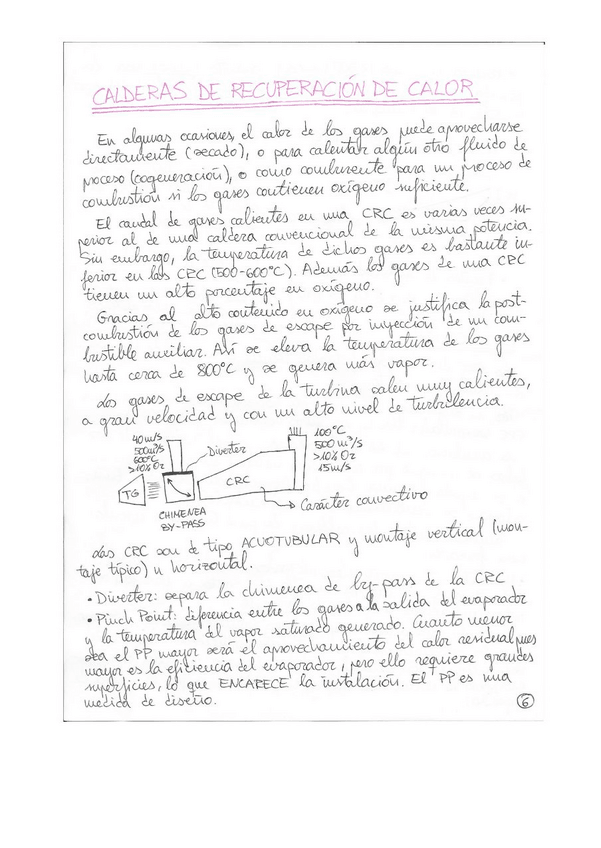 CALDERAS DE RECUPERACIÓN DE CALOR
En algunas ocasiones, el calor de los gases puede aprovecharse
directamente (secado), o para calentar algún otro fluido de
proceso (cogeneración), o como comburente para un proceso de
combustión si los gases contienen oxígeno suficiente.
El caudal de gases calientes en una CRC es varias veces su-
perior al de una caldera convencional de la misma potencia.
Sin embargo, la temperatura de dichos gases es bastante in-
ferior en las CRC (500-600°C). Además los gases de una CRC
tienen un alto porcentaje en oxígeno.
Gracias al alto contenido en oxígeno se justifica la post-
combustión de los gases de escape por inyección de un com-
bustible auxiliar. Así se eleva la temperatura de los gases
hasta cerca de 800°C y se genera más vapor.
Los gases de escape de la turbina salen muy calientes,
a gran velocidad y con un alto nivel de turbulencia.
40 m/s
500 m³/s
600°C
>10% O2
TG
Diverter
CHIMENEA
BY-PASS
CRC
100°C
500 m³/s
>10% O2
15 m/s
Carácter convectivo
Las CRC son de tipo ACUOTUBULAR y montaje vertical (mon-
taje típico) u horizontal.
• Diverter: separa la chimenea de by-pass de la CRC
• Pinch Point: diferencia entre los gases a la salida del evaporador
y la temperatura del vapor saturado generado. Cuanto menor
sea el PP mayor será el aprovechamiento del calor residual pues
mayor es la eficiencia del evaporador, pero ello requiere grandes
superficies, lo que ENCARECE la instalación. El PP es una
medida de diseño.
6